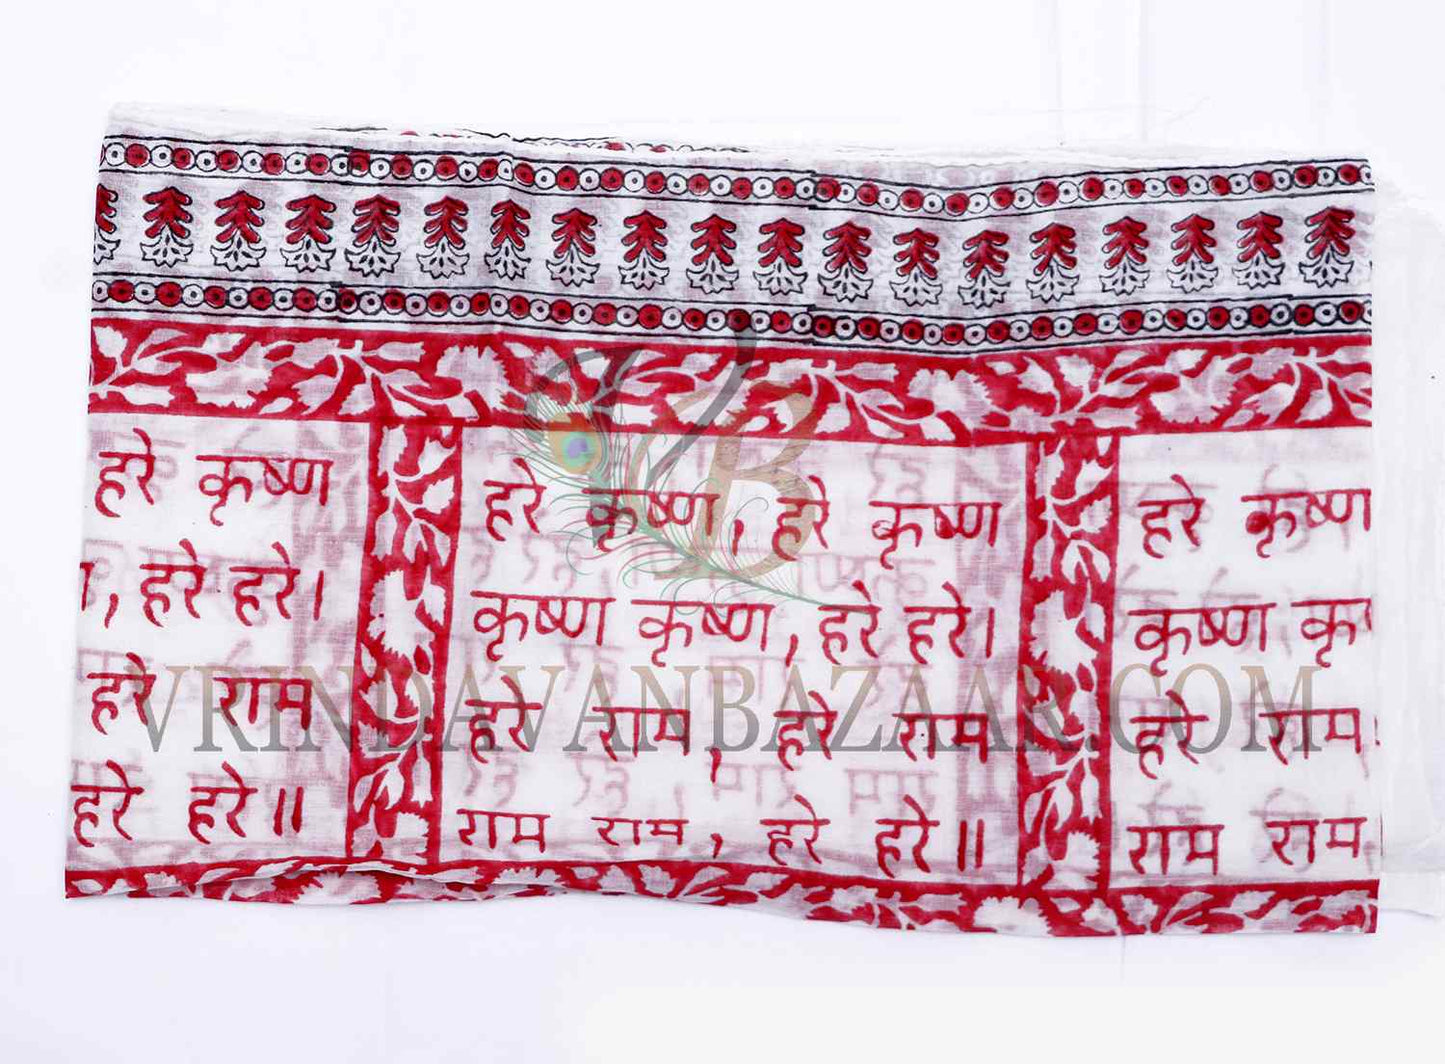 हरे कृष्ण
, हरे हरे।
हरे राम
हरे हरे॥
हरे कृष्ण, हरे कृष्ण
कृष्ण कृष्ण, हरे हरे।
हरे राम, हरे राम
राम राम, हरे हरे॥
हरे कृष्ण
कृष्ण कृ
हरे राम
राम राम
VB
VRINDAVANBAZAAR.COM